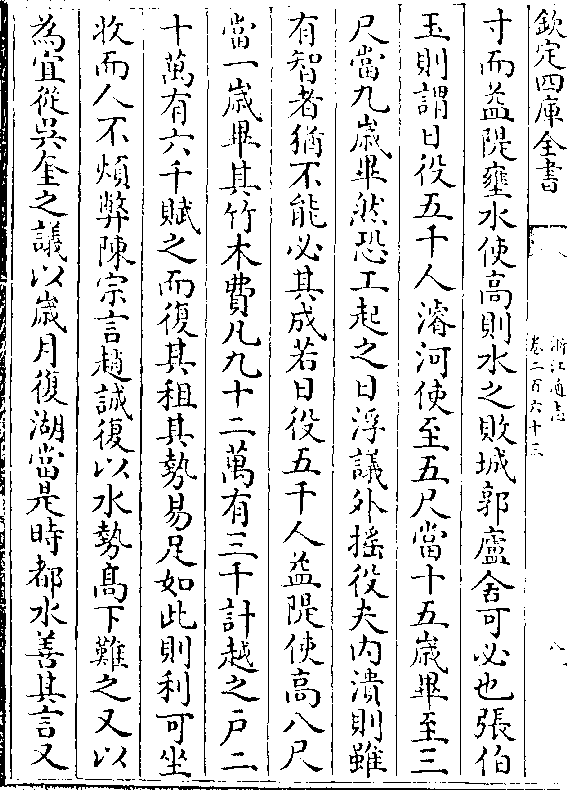 欽定四庫全書
浙江通志
卷二百六十三
八
寸而益隄壅水使高則水之敗城郭廬舍可必也張伯
玉則謂日役五千人濬河使至五尺當十五歲畢至三
尺當九歲畢然恐工起之日浮議外搖役夫内潰則雖
有智者猶不能必其成若日役五千人益隄使高八尺
當一歲畢其竹木費凡九十二萬有三千計越之户二
十萬有六千賦之而復其租其勢易足如此則利可坐
收而人不煩弊陳宗言趙誠復以水勢髙下難之又以
為宜從吳奎之議以歲月復湖當是時都水善其言又